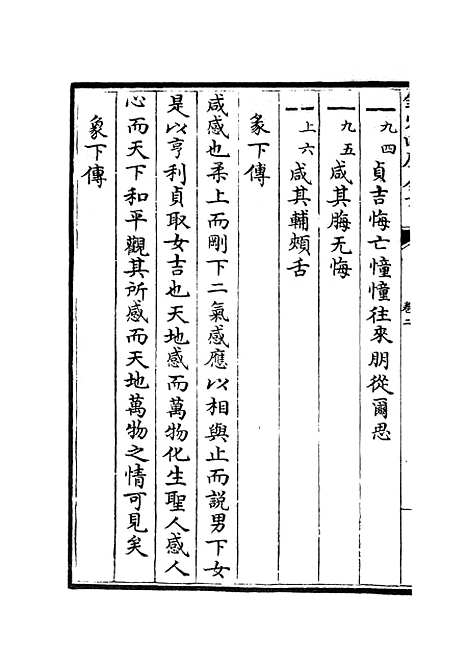 九四貞吉悔亡憧憧往來朋從爾思
九五咸其脢无悔
上六咸其輔頰舌
彖下傳
咸感也柔上而剛下二氣感應以相與止而說男下女
是以亨利貞取女吉也天地感而萬物化生聖人感人
心而天下和平觀其所感而天地萬物之情可見矣
象下傳
卷二